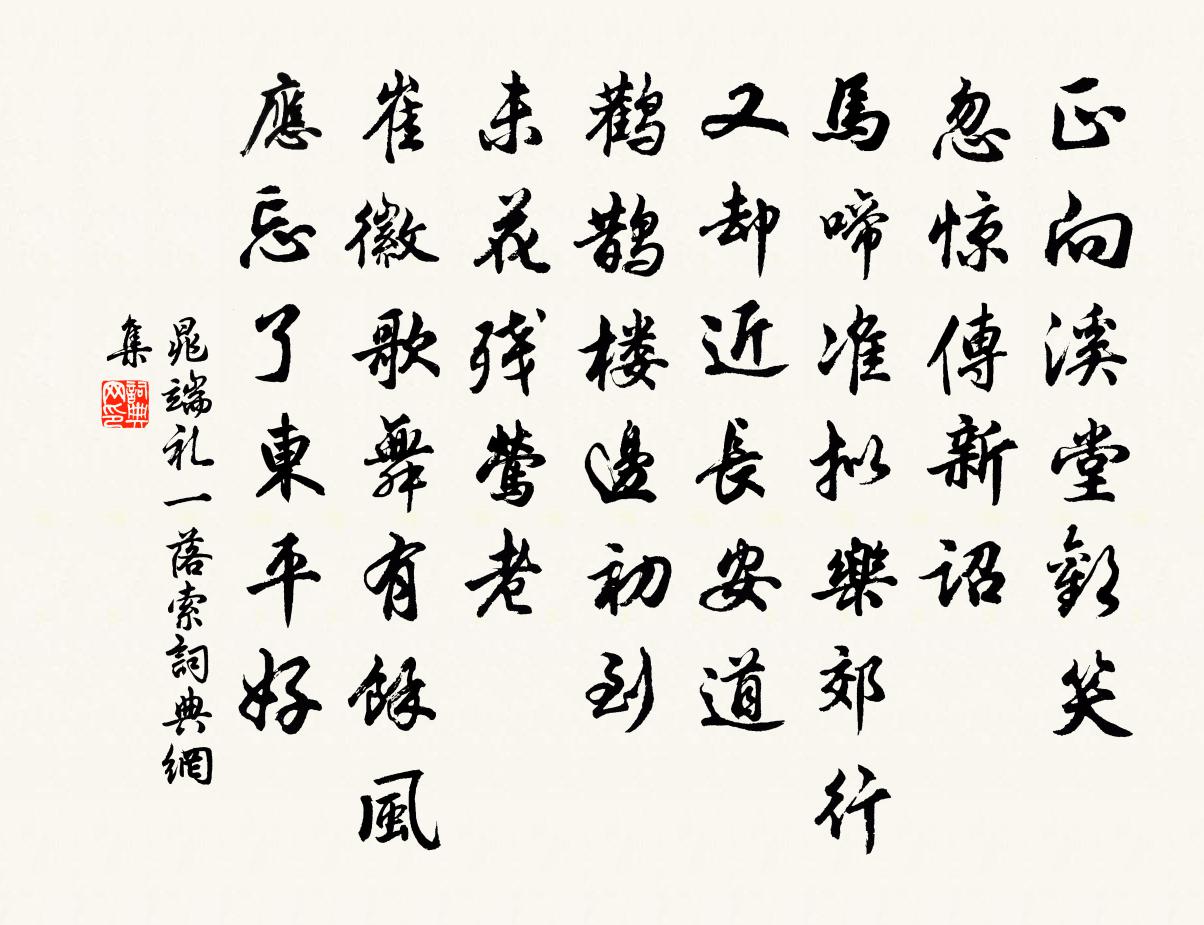 正向溪堂歡笑
忽惊傳新詔
馬啼准拟樂郊行
又却近長安道
鸛鵲楼邊初到
未花残鶯老
崔徽歌舞有餘風
應忘了東平好
晁端礼一落索詞典網
集
詞典網印